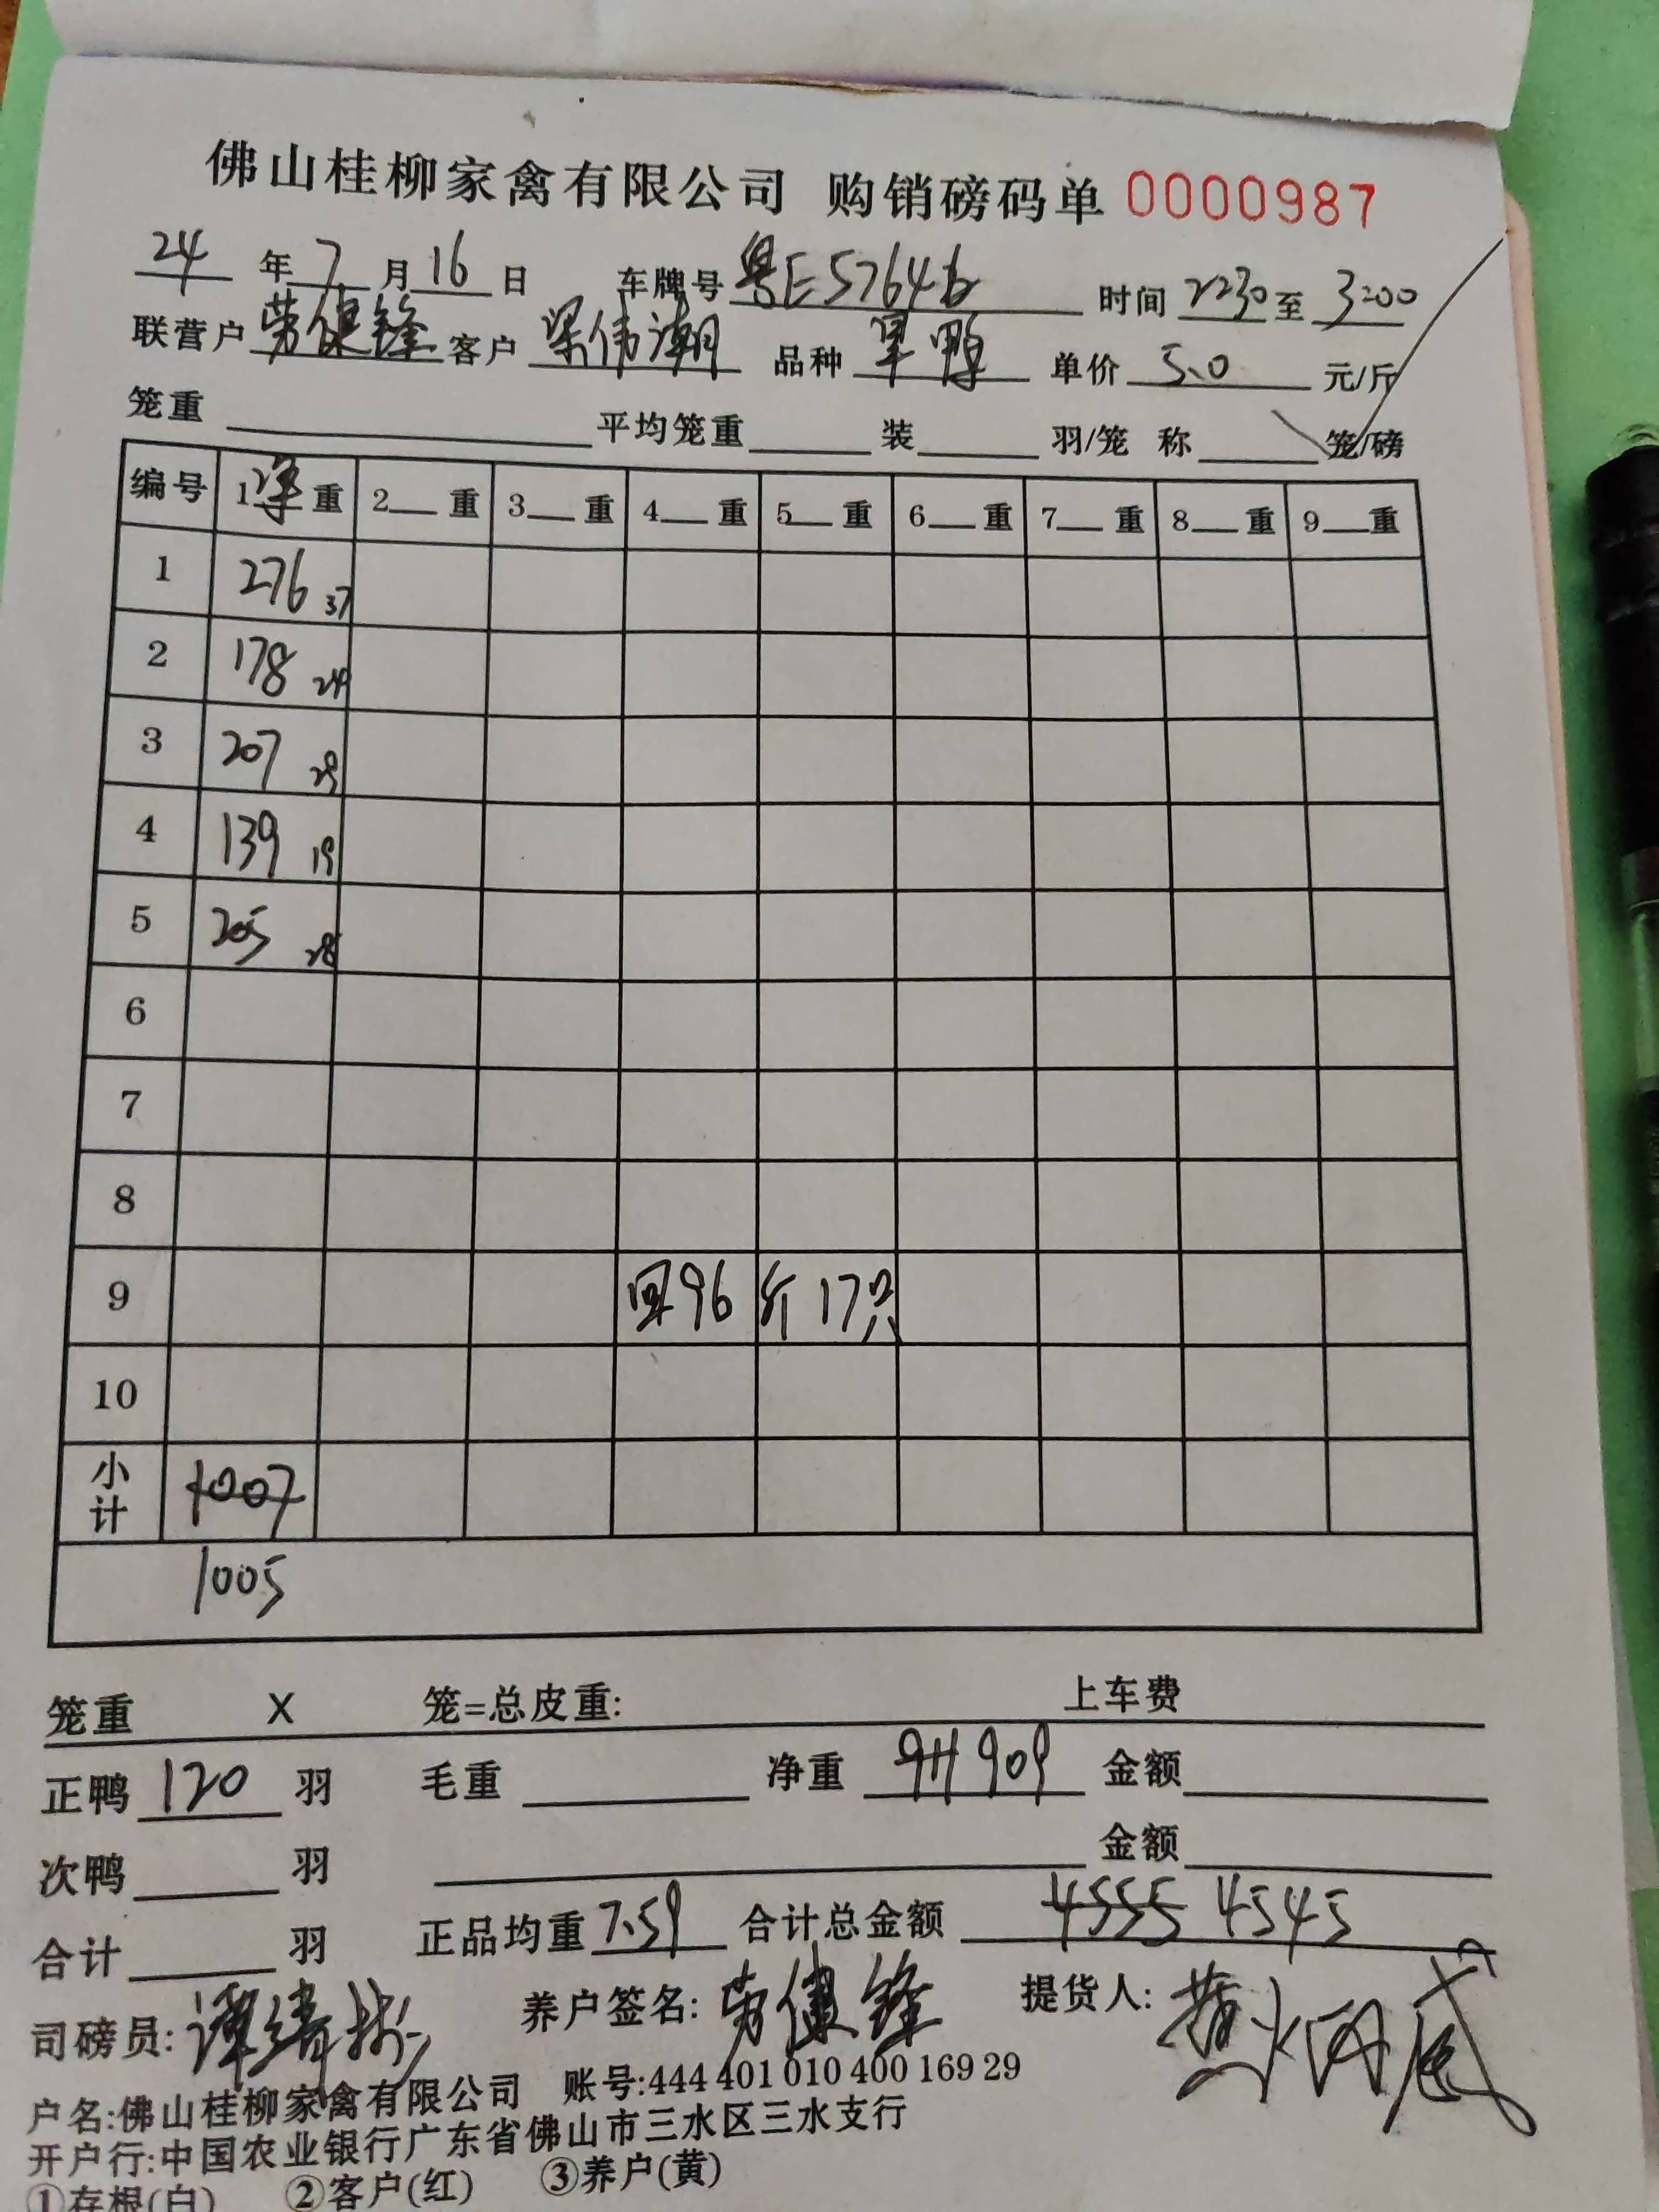 佛山桂柳家禽有限公司 购销磅码单 0000987
24 年 7 月 16 日 车牌号 粤E57646 时间 2230 至 3:00
联营户 劳健锋 客户 梁伟潮 品种 旱鸭 单价 5.0 元/斤
笼重 平均笼重 装 羽/笼 称 笼/磅
编号 1净重 2 重 3 重 4 重 5 重 6 重 7 重 8 重 9 重
1 276 37
2 178 24
3 207 29
4 139 19
5 205 28
6
7
8
9 回96 斤 17只
10
小计 1007
1005
笼重 X 笼=总皮重: 上车费
正鸭 120 羽 毛重 净重 911 909 金额
次鸭 羽 金额
合计 羽 正品均重 7.59 合计总金额 4555 4545
司磅员: 谭绮彬 养户签名: 劳健锋 提货人:
户名:佛山桂柳家禽有限公司 账号:444 401 010 400 169 29
开户行:中国农业银行广东省佛山市三水区三水支行
①存根(白) ②客户(红) ③养户(黄)